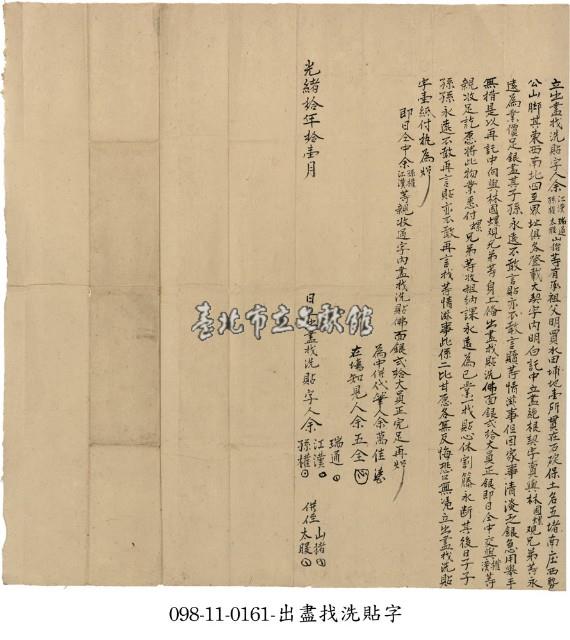 立出盡找洗貼字人余江漢瑞通孫權太膑山猪等有承祖父明買水田埔地壹所貫在石碇保土名五堵南庄西勢
公山腳其東西南北四至界址俱各登載大契字內明白託中立盡絕根契字賣與林國螺觀兄弟等永
遠為業價足銀盡其子孫永遠不敢言貼亦不敢言贖等情滋事但因家事清淡乏銀急用舉手
無措是以再託中向與林國螺觀兄弟等身上備出盡找貼洗佛面銀弍拾大員正銀即日仝中交與權漢等
親收足訖愿將此物業悉付螺兄弟等收租納課永遠為己業一找貼心休割籐永斷其後日子子
孫孫永遠不敢再言貼亦不敢再言找等情滋事此係二比甘愿各無反悔恐口無憑立出盡找洗貼
字壹紙付執為炤
即日仝中余孫權江漢等親收過字內盡找洗貼佛面銀弍拾大員正完足再炤
為中併代筆人余萬佳
在塲知見人余五全
光緒拾年拾壹月　日立出盡找洗貼字人余
瑞通
江漢
孫權
山猪
太膑
臺北市立文獻館
098-11-0161-出盡找洗貼字